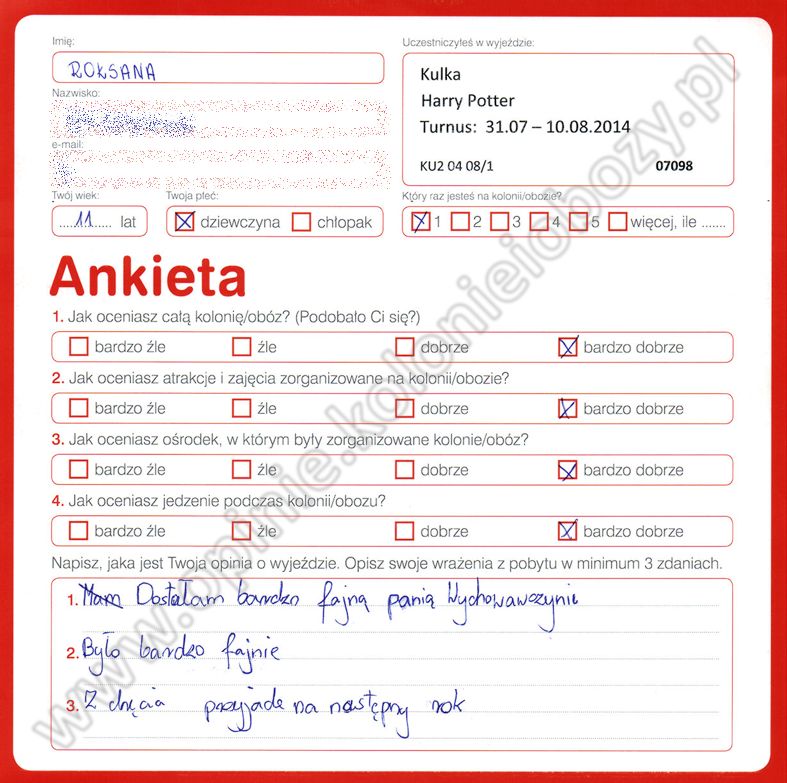 Imię:
ROKSANA
Nazwisko:
e-mail:
Twój wiek:
11 lat
Twoja płeć:
dziewczyna chłopak
Uczestniczyłeś w wyjeździe:
Kulka
Harry Potter
Turnus: 31.07 – 10.08.2014
KU2 04 08/1 07098
Który raz jesteś na kolonii/obozie?
1 2 3 4 5 więcej, ile .......
Ankieta
1. Jak oceniasz całą kolonię/obóz? (Podobało Ci się?)
bardzo źle źle dobrze bardzo dobrze
2. Jak oceniasz atrakcje i zajęcia zorganizowane na kolonii/obozie?
bardzo źle źle dobrze bardzo dobrze
3. Jak oceniasz ośrodek, w którym były zorganizowane kolonie/obóz?
bardzo źle źle dobrze bardzo dobrze
4. Jak oceniasz jedzenie podczas kolonii/obozu?
bardzo źle źle dobrze bardzo dobrze
Napisz, jaka jest Twoja opinia o wyjeździe. Opisz swoje wrażenia z pobytu w minimum 3 zdaniach.
1. Mam Dostałam bardzo fajną panią Wychowawczynie
2. Było bardzo fajnie
3. Z chęcia przyjade na następny rok
www.opinie.kolonieiobozy.pl